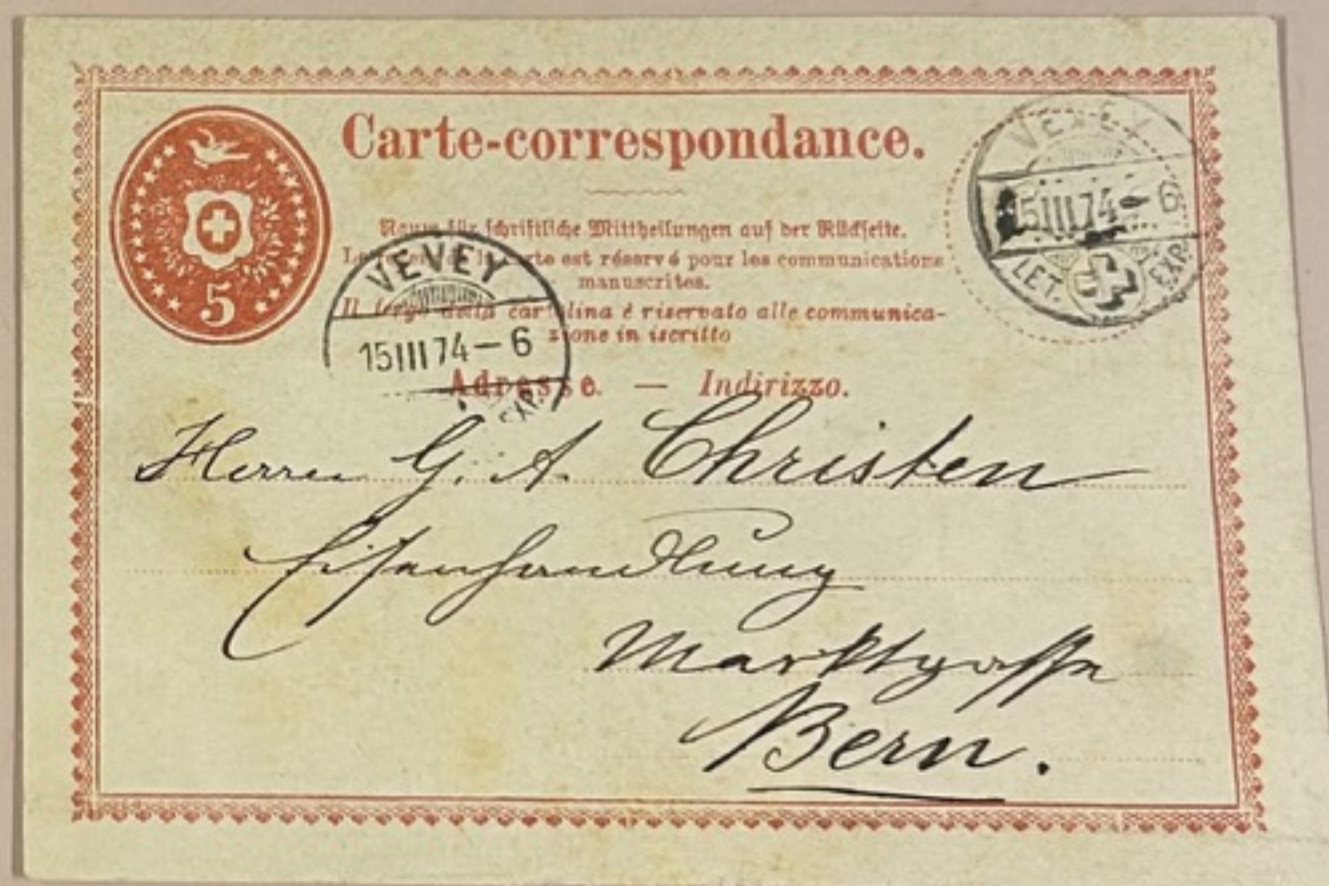 Carte-correspondance.
Raum für schriftliche Mittheilungen auf der Rückseite.
Le de la carte est réservé pour les communications
manuscrites.
Il tergo della cartolina é riservato alle communica-
zione in iscritto
Adresse. — Indirizzo.
5
VEVEY
15 III 74 – 6
EXP.
VEVEY
15 III 74 – 6
LET. EXP.
Herrn G. A. Christen
Eisenhandlung
Marktgasse
Bern.